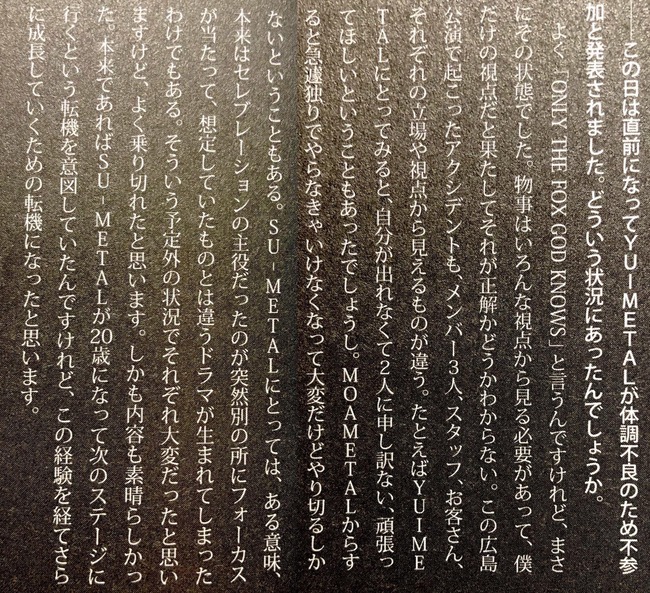 ――この日は直前になってYUIMETALが体調不良のため不参
加と発表されました。どういう状況にあったんでしょうか。
よく「ONLY THE FOX GOD KNOWS」と言うんですけれど、まさ
にその状態でした。物事はいろんな視点から見る必要があって、僕
だけの視点だと果たしてそれが正解かどうかわからない。この広島
公演で起こったアクシデントも、メンバー3人、スタッフ、お客さん、
それぞれの立場や視点から見えるものが違う。たとえばYUIME
TALにとってみると、自分が出れなくて2人に申し訳ない、頑張っ
てほしいということもあったでしょうし。MOAMETALからす
ると急遽独りでやらなきゃいけなくなって大変だけどやり切るしか
ないということもある。SU-METALにとっては、ある意味、
本来はセレブレーションの主役だったのが突然別の所にフォーカス
が当たって、想定していたものとは違うドラマが生まれてしまった
わけでもある。そういう予定外の状況でそれぞれ大変だったと思い
ますけど、よく乗り切れたと思います。しかも内容も素晴らしかっ
た。本来であればSU-METALが20歳になって次のステージに
行くという転機を意図していたんですけれど、この経験を経てさら
に成長していくための転機になったと思います。